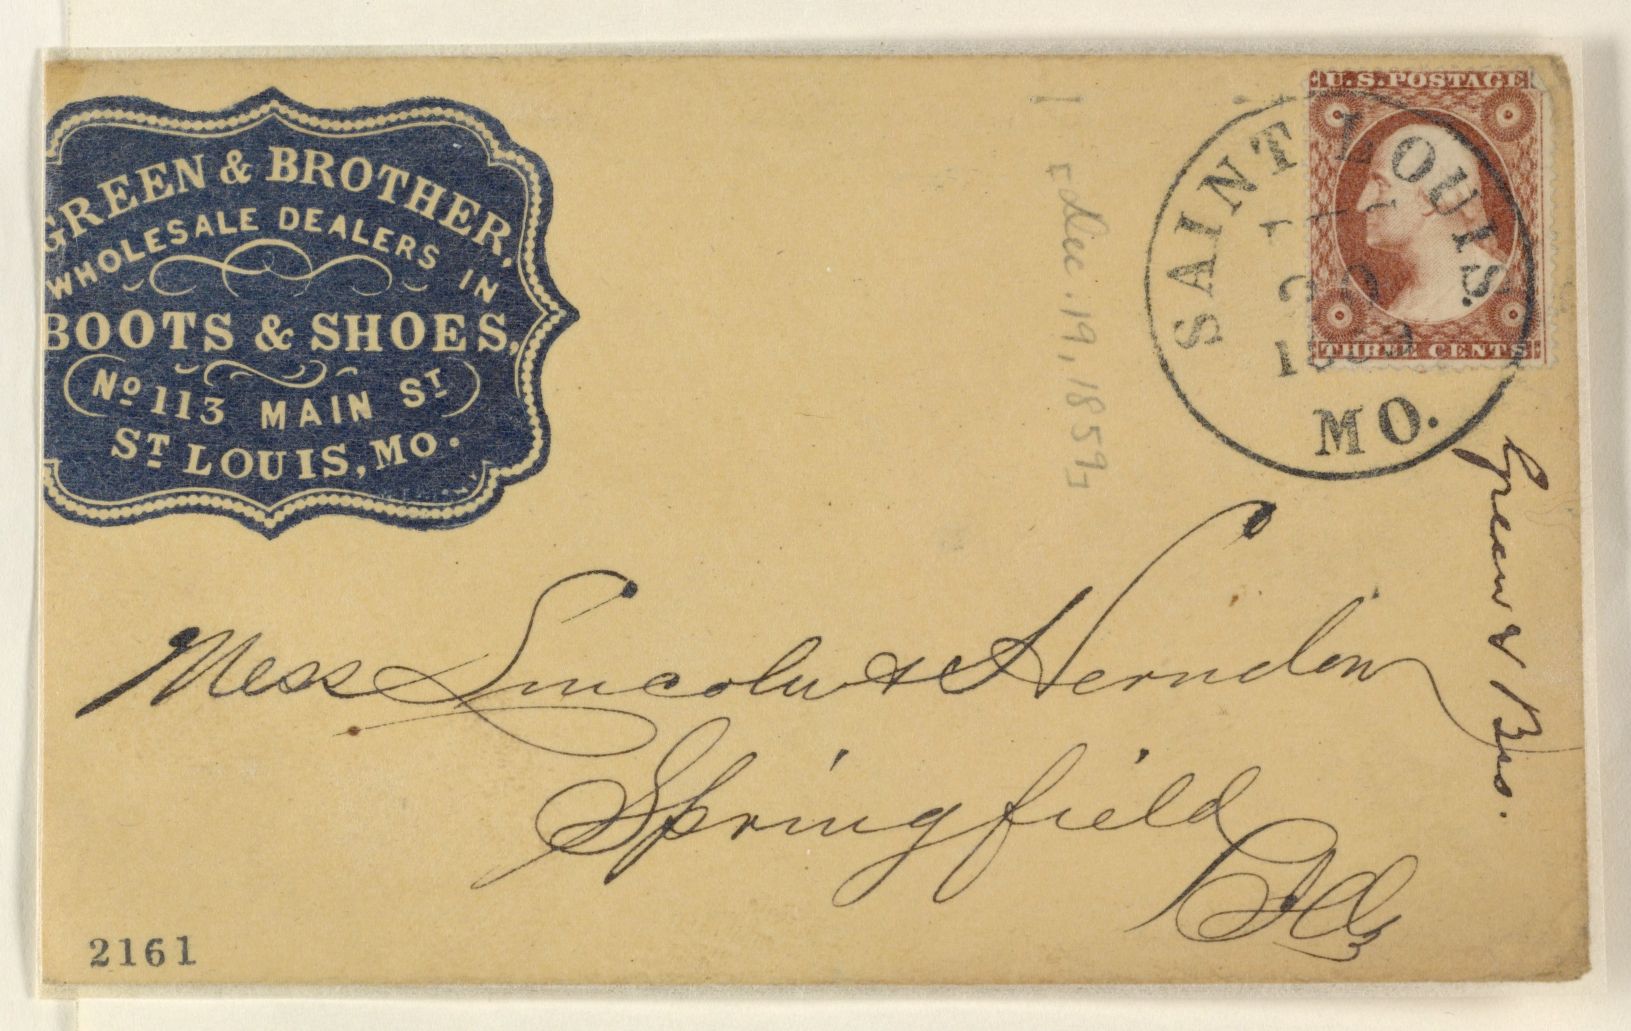 GREEN & BROTHER,
WHOLESALE DEALERS IN
BOOTS & SHOES,
No 113 MAIN ST
ST LOUIS, MO.
[Dec. 19, 1859]
U.S. POSTAGE
THREE CENTS
SAINT LOUIS.
20
MO.
Green & Bro.
Mess Lincoln & Herndon
Springfield
Ills
2161